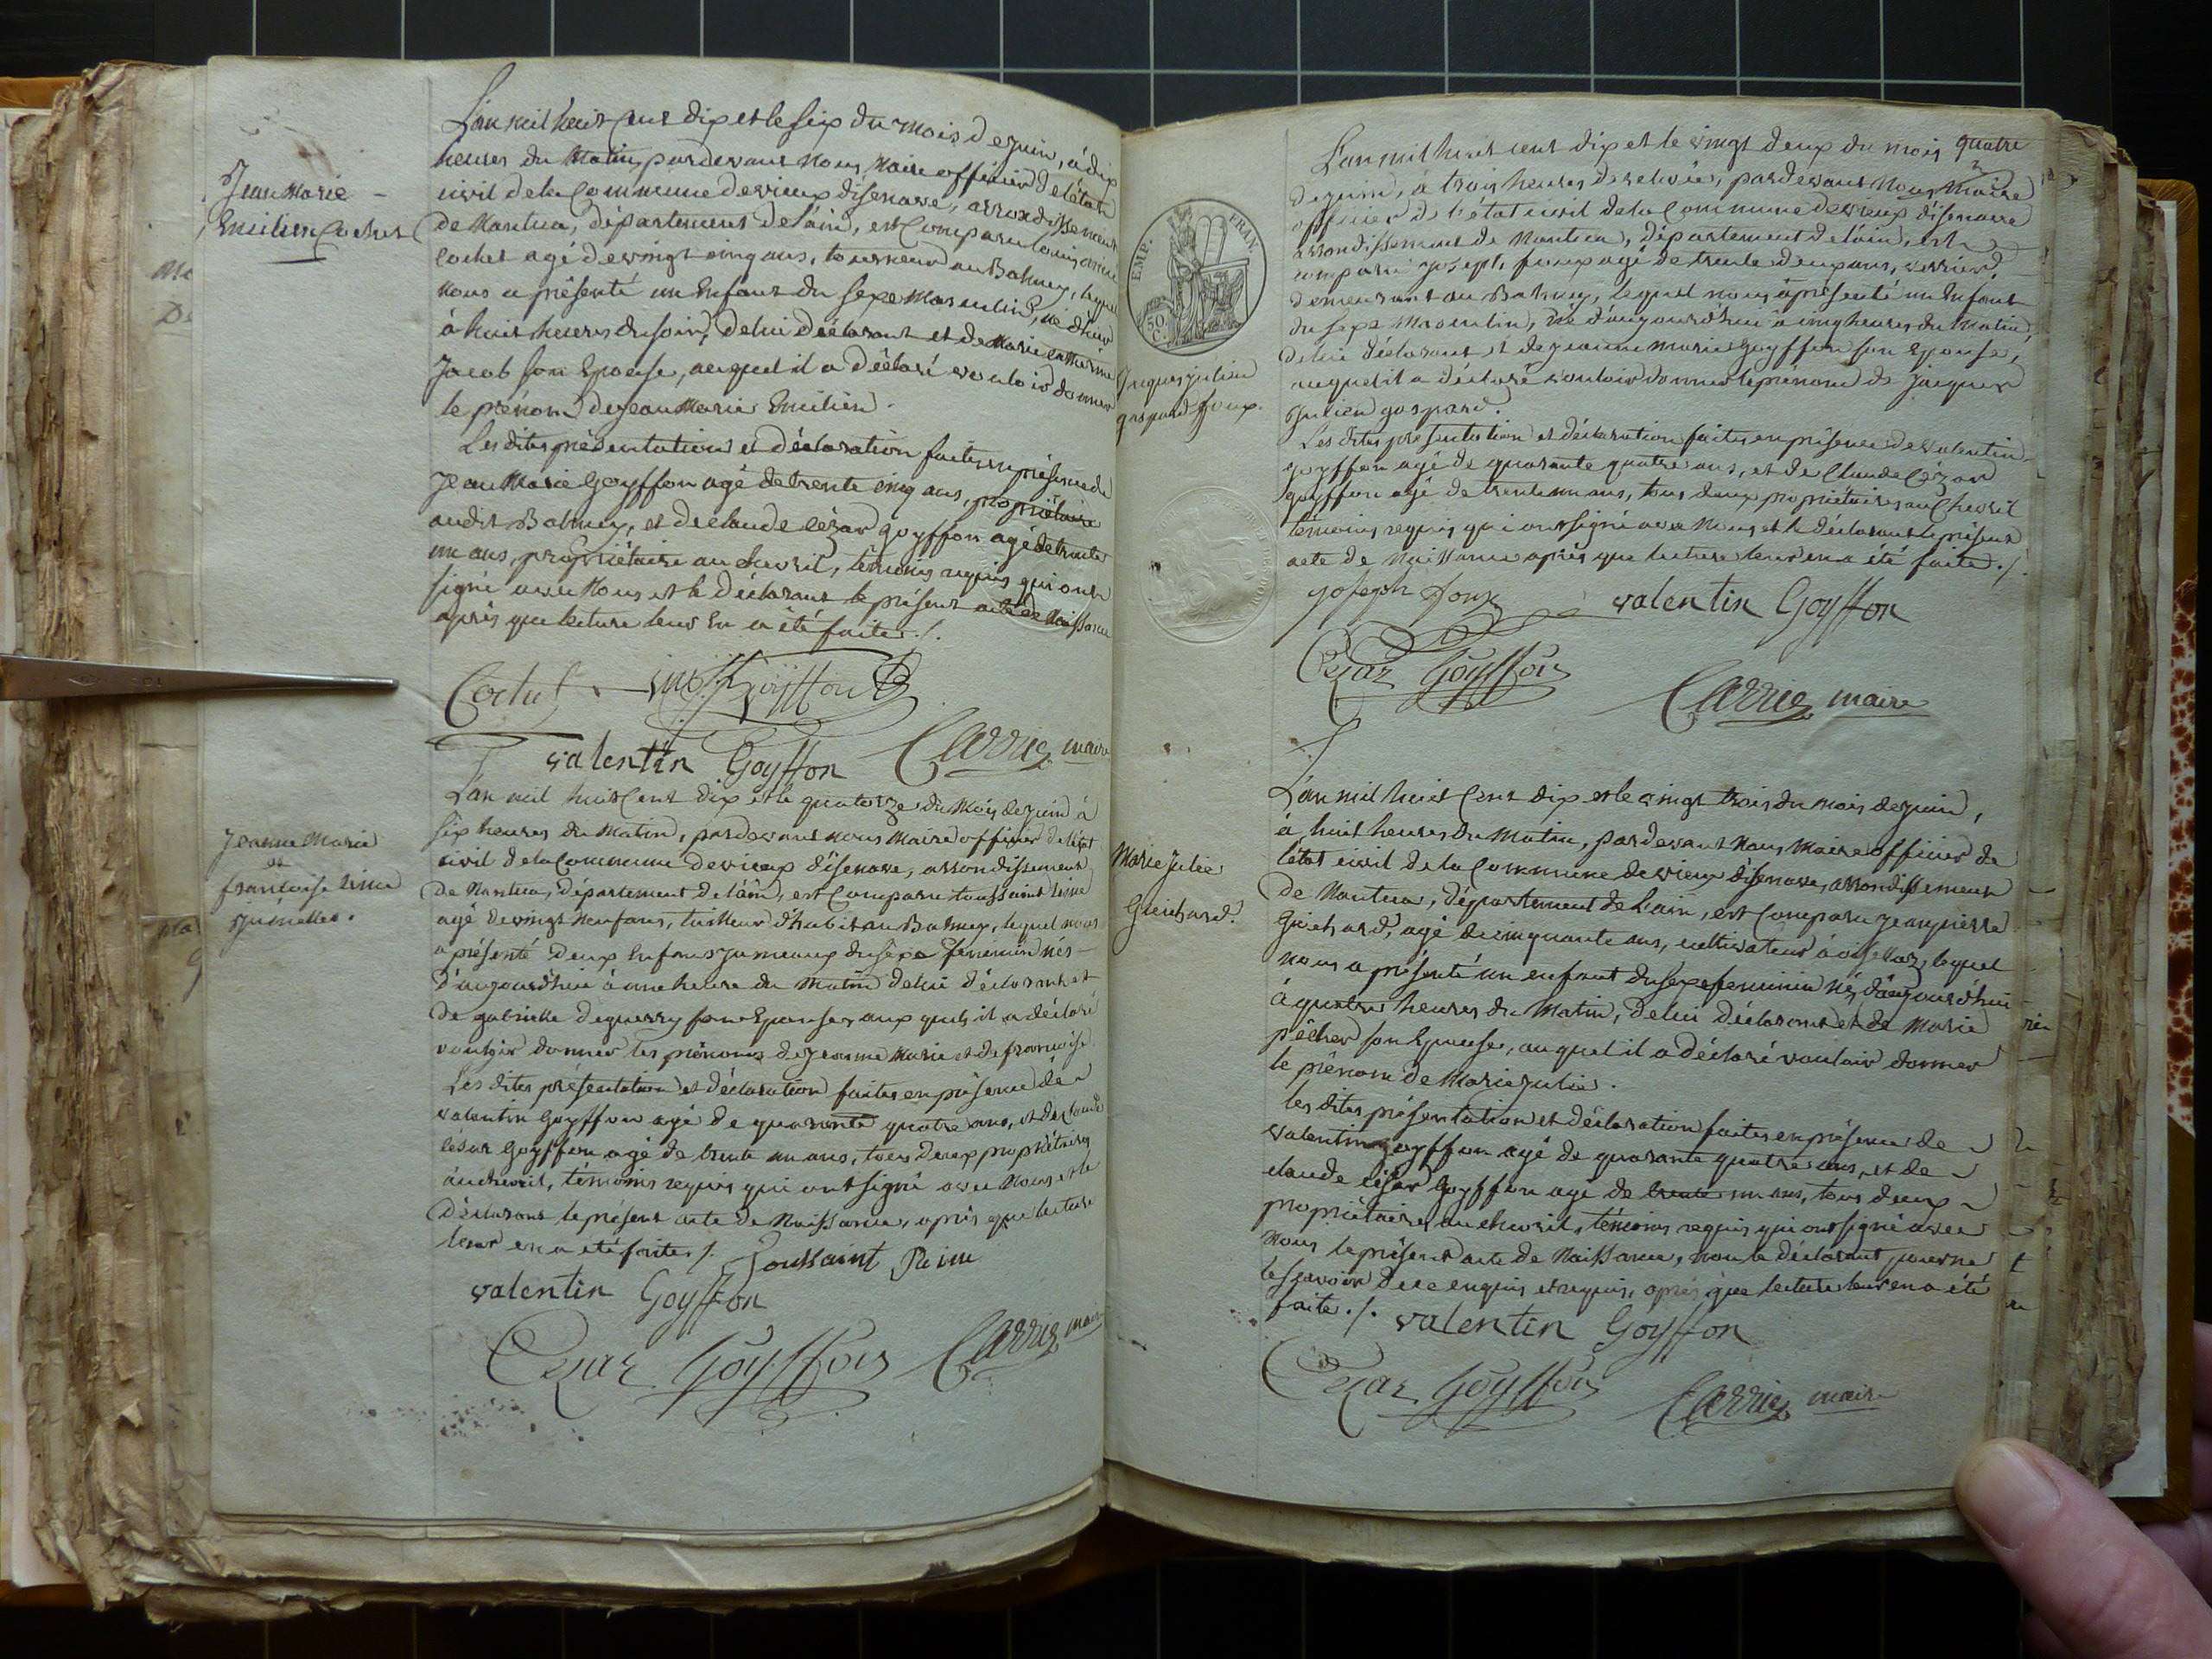 Jean Marie
Emilien Cochet
L'an mil huit cent dix et le six du mois de juin, à dix
heures du Matin, pardevant nous, Maire officier de l'état
civil de la Commune de vieux d'isenave, arrondissement
de Nantua, département de l'ain, est Comparu louis
Cochet agé de vingt cinq ans, tourneur au Balmey, lequel
nous a présenté un Enfant du sexe Masculin, né d'hier
à huit heures du soir, de lui déclarant et de Marie
Jacob son Epouse, auquel il a déclaré vouloir donner
le prénom de Jean Marie Emilien.
Les dites présentation et déclaration faites en présence de
Jean Marie Goyffon agé de trente cinq ans, propriétaire
audit Balmey, et de claude cézar goyffon agé de trente
un ans, propriétaire au chevril, témoins requis qui ont
signé avec Nous et le déclarant le présent acte de Naissance
après que lecture leur En a été faite ./.
Cochet Goyffon
valentin Goyffon Carrier maire
Jeanne Marie
et
françoise
Jumelles.
L'an mil huit Cent dix et le quatorze du Mois de juin à
six heures du Matin, pardevant nous Maire officier de l'état
civil de la Commune de vieux d'isenave, arrondissement
de Nantua, département de l'ain, est Comparu toussaint
agé de vingt neuf ans, tailleur d'habit au Balmey, lequel nous
a présenté deux Enfans Jumeaux du sexe femenin nés
d'aujourd'hui à une heure du Matin de lui déclarant et
de gabrielle deguerry son Epouse, aux quels il a déclaré
vouloir donner les prénoms de Jeanne Marie et de françoise.
Les dites présentation et déclaration faites en présence de
valentin Goyffon agé de quarante quatre ans, et de Claude
césar Goyffon agé de trente un ans, tous deux propriétaires
au chevril, témoins requis qui ont signé avec Nous et le
Déclarant le présent acte de Naissance, après que lecture
leur en a été faite ./. Toussaint
valentin Goyffon
Cezar Goyffon Carrier maire
quatre
EMP. FRAN.
50 C.
Jaques julien
gaspard foux.
L'an mil huit cent dix et le vingt deux du mois
de juin, à trois heures de relevée, pardevant Nous Maire
officier de l'état civil de la Commune de vieux d'isenave
arrondissement de Nantua, département de l'ain, est
comparu joseph foux agé de trente deux ans,
demeurant au Balmey, lequel nous a présenté un Enfant
du sexe Masculin, né d'aujourd'hui à cinq heures du Matin,
de lui déclarant et de jeanne marie Goyffon son Epouse,
auquel il a déclaré vouloir donner le prénom de Jacques
Julien gaspard.
Les dites présentation et déclaration faites en présence de valentin
goyffon agé de quarante quatre ans, et de Claude Cézar
goyffon agé de trente un ans, tous deux propriétaires au Chevril
témoins requis qui ont signé avec Nous et le déclarant le présent
acte de Naissance après que lecture leur en a été faite ./.
Joseph foux valentin Goyffon
Cezar Goyffon
Carrier maire
Marie Julie
Guichard.
L'an mil huit Cent dix et le vingt trois du mois de juin,
à huit heures du Matin, pardevant Nous Maire officier de
l'état civil de la Commune de vieux d'isenave, arrondissement
de Nantua, département de L'ain, est Comparu jean pierre
Guichard, agé de cinquante ans, cultivateur à lequel
nous a présenté un enfant du sexe femenin né d'aujourd'hui
à quatre heures du Matin, de lui déclarant et de Marie
pêcher son Epouse, auquel il a déclaré vouloir donner
le prénom de Marie Julie.
les dites présentation et déclaration faites en présence de
valentin goyffon agé de quarante quatre ans, et de
claude césar goyffon agé de trente un ans, tous deux
propriétaires au chevril, témoins requis qui ont signé avec
Nous le présent acte de Naissance, non le déclarant pour ne
le scavoir de ce enquis et requis, après que lecture leur en a été
faite ./. valentin Goyffon
Cezar Goyffon Carrier maire